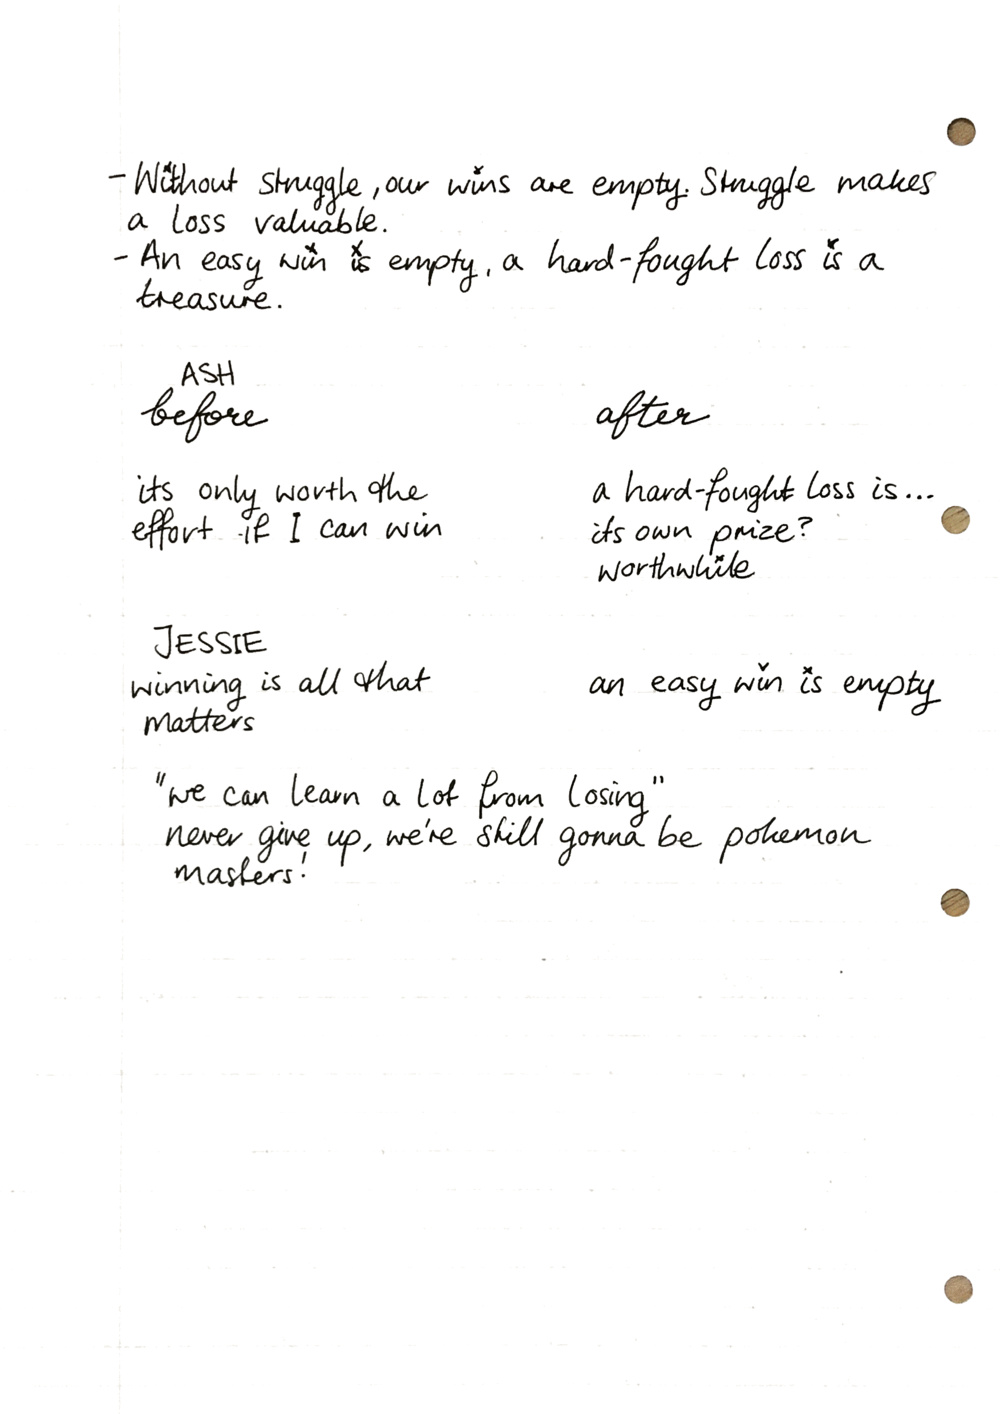 - Without struggle, our wins are empty. Struggle makes
a loss valuable.
- An easy win is empty, a hard-fought loss is a
treasure.
ASH
before after
its only worth the a hard-fought loss is...
effort if I can win its own prize?
worthwhile
JESSIE
winning is all that an easy win is empty
matters
"we can learn a lot from losing"
never give up, we're still gonna be pokemon
masters!